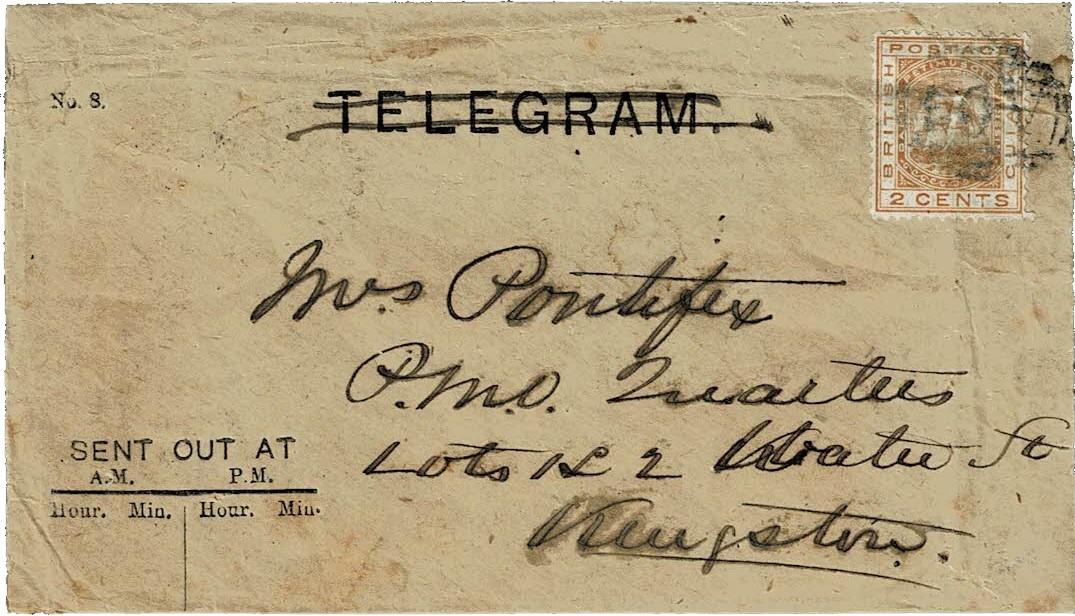 No. 8.
TELEGRAM.
POSTAGE
BRITISH
GUIANA
PETIMUSQUE
2 CENTS
Mrs Pontifex
P.M.O. Quarters
Lots 1 & 2 Water St
Kingston.
SENT OUT AT
A.M. P.M.
Hour. Min. Hour. Min.